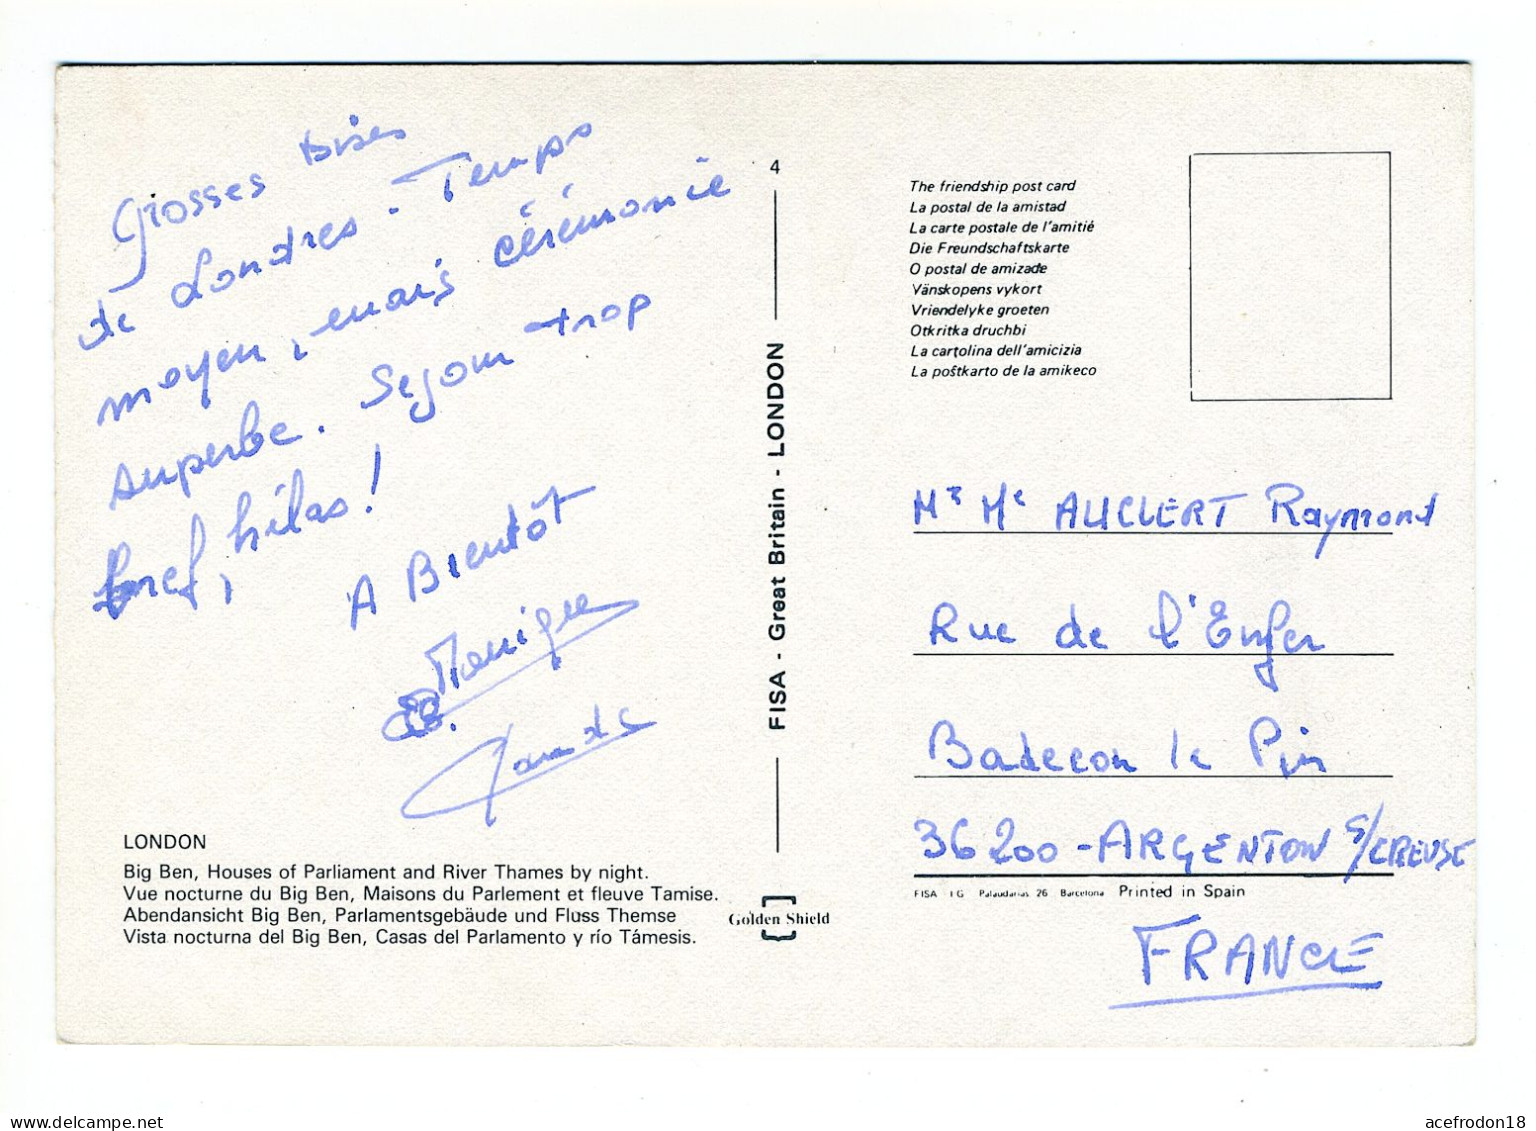 Grosses bises
de Londres. Temps
moyen, mais cérémonie
superbe. Sejour trop
bref, hélas !
A Bientôt
Monique
LONDON
Big Ben, Houses of Parliament and River Thames by night.
Vue nocturne du Big Ben, Maisons du Parlement et fleuve Tamise.
Abendansicht Big Ben, Parlamentsgebäude und Fluss Themse
Vista nocturna del Big Ben, Casas del Parlamento y río Támesis.
4
FISA - Great Britain - LONDON
Golden Shield
The friendship post card
La postal de la amistad
La carte postale de l'amitié
Die Freundschaftskarte
O postal de amizade
Vänskopens vykort
Vriendelyke groeten
Otkritka druchbi
La cartolina dell'amicizia
La poŝtkarto de la amikeco
Mr Me AUCLERT Raymond
Rue de l'Enfer
Badecon le Pin
36200 - ARGENTON S/CREUSE
FISA I G Palaudarias 26 Barcelona Printed in Spain
FRANCE
acefrodon18